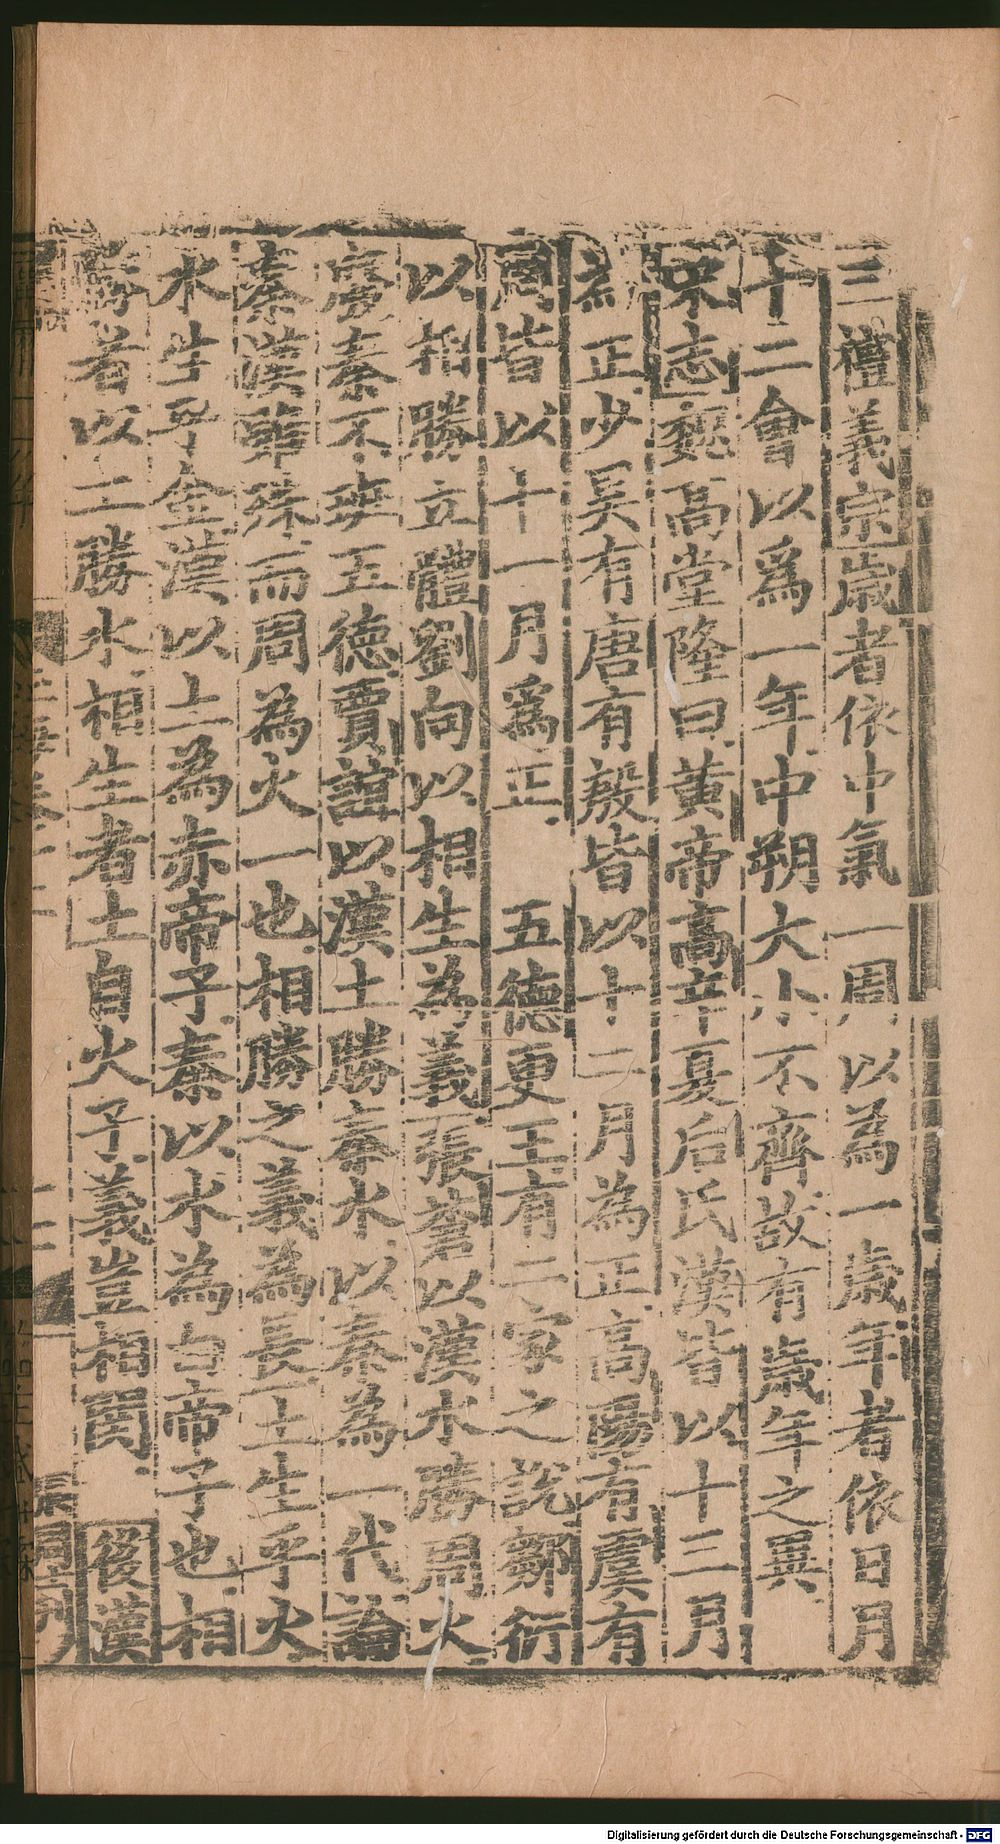 三禮義宗歲者依中氣一周以為一歲年者依日月
十二會以爲一年中朔大小不齊故有歲年之異
宋志魏高堂隆曰黃帝高辛夏后氏漢皆以十三月
為正少昊有唐有殷皆以十二月為正高陽有虞有
周皆以十一月爲正 五德更王有二家之說鄒衍
以相勝立體劉向以相生為義張蒼以漢水勝周火
廢秦不班五德賈誼以漢土勝秦水以秦為一代論
秦漢雖殊而周為火一也相勝之義為長王生乎火
水生乎金漢以土為赤帝子秦以水為白帝子也相
勝者以土勝水相生者土自火子義豈相關 後漢
Digitalisierung gefördert durch die Deutsche Forschungsgemeinschaft - DFG